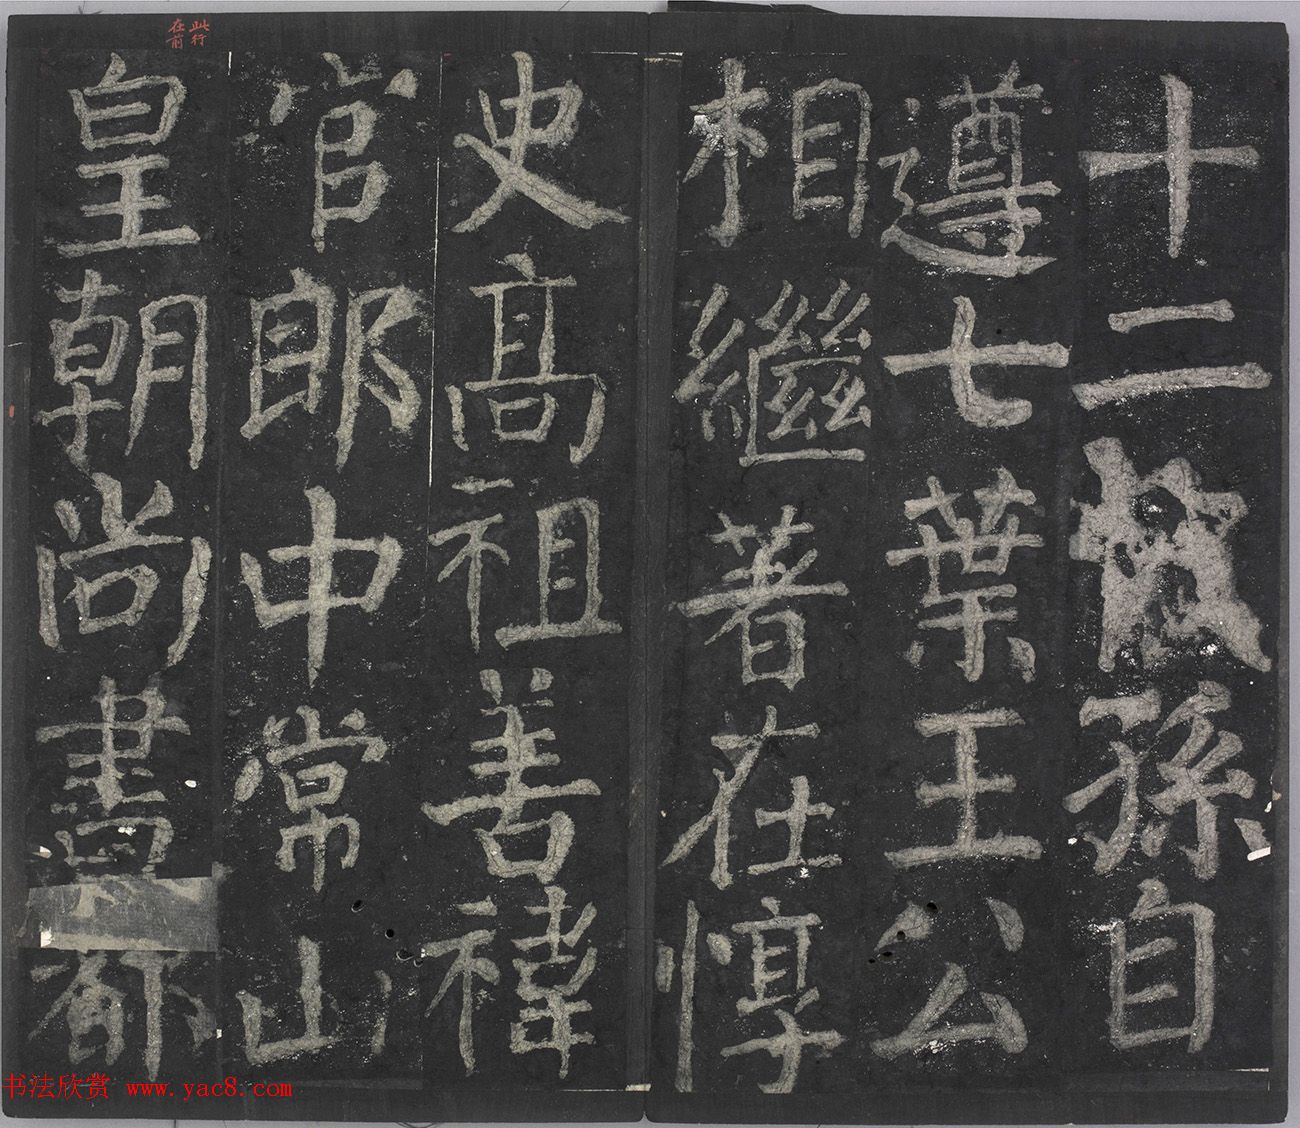 十二代孫自
遵七葉王公
相繼著在惇
史高祖善禕
官郎中常山
皇朝尚書都
此行
在前
书法欣赏 www.yac8.com